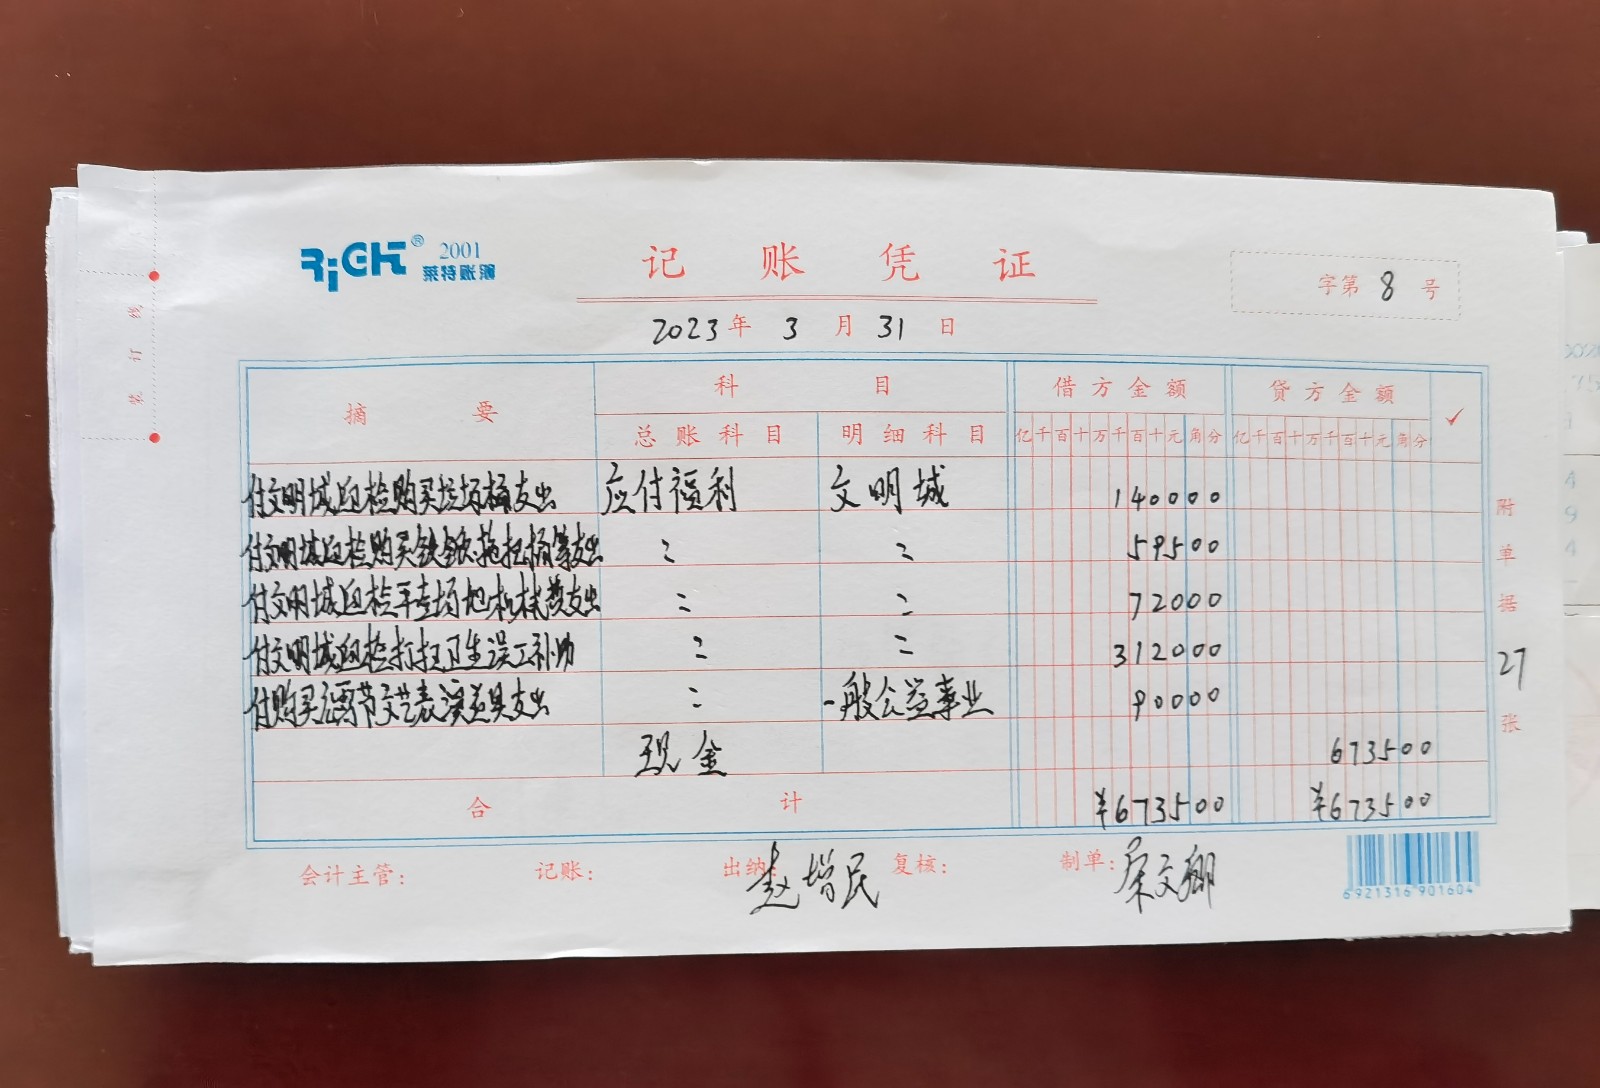 RiGHT® 2001
莱特账簿
记账凭证
字第 8 号
2023 年 3 月 31 日
装订线
摘要 科目 借方金额 贷方金额 ✓
总账科目 明细科目 亿千百十万千百十元角分 亿千百十万千百十元角分
付文明城迎检购买垃圾桶支出 应付福利 文明城 140000
付文明城迎检购买铁锨拖把桶等支出 〃 〃 59500
付文明城迎检平整场地机械费支出 〃 〃 72000
付文明城迎检打扫卫生误工补助 〃 〃 312000
付购买元宵节文艺表演道具支出 〃 一般公益事业 90000
现金 673500
合计 ¥673500 ¥673500
附单据 27 张
会计主管: 记账: 出纳: 赵增民 复核: 制单:
6921316901604